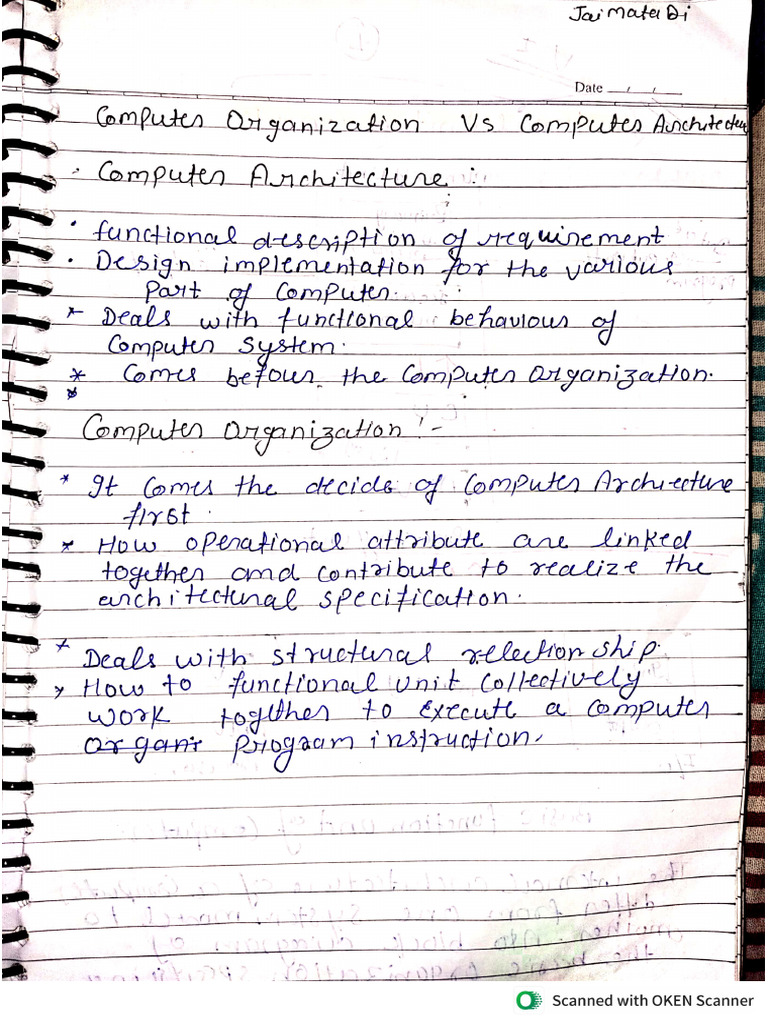 Jai Mata Di
Date
Computer Organization Vs Computer Architecture
Computer Architecture :
functional description of requirement
Design implementation for the various
Part of Computer.
* Deals with functional behaviour of
Computer System.
* Comes before the Computer Organization.
*
Computer Organization :-
* It Comes the decide of Computer Architecture
first.
* How operational attribute are linked
together and contribute to realize the
architectural specification.
* Deals with structural relectionship.
* How to functional unit Collectively
work together to execute a Computer
program instruction.
Scanned with OKEN Scanner